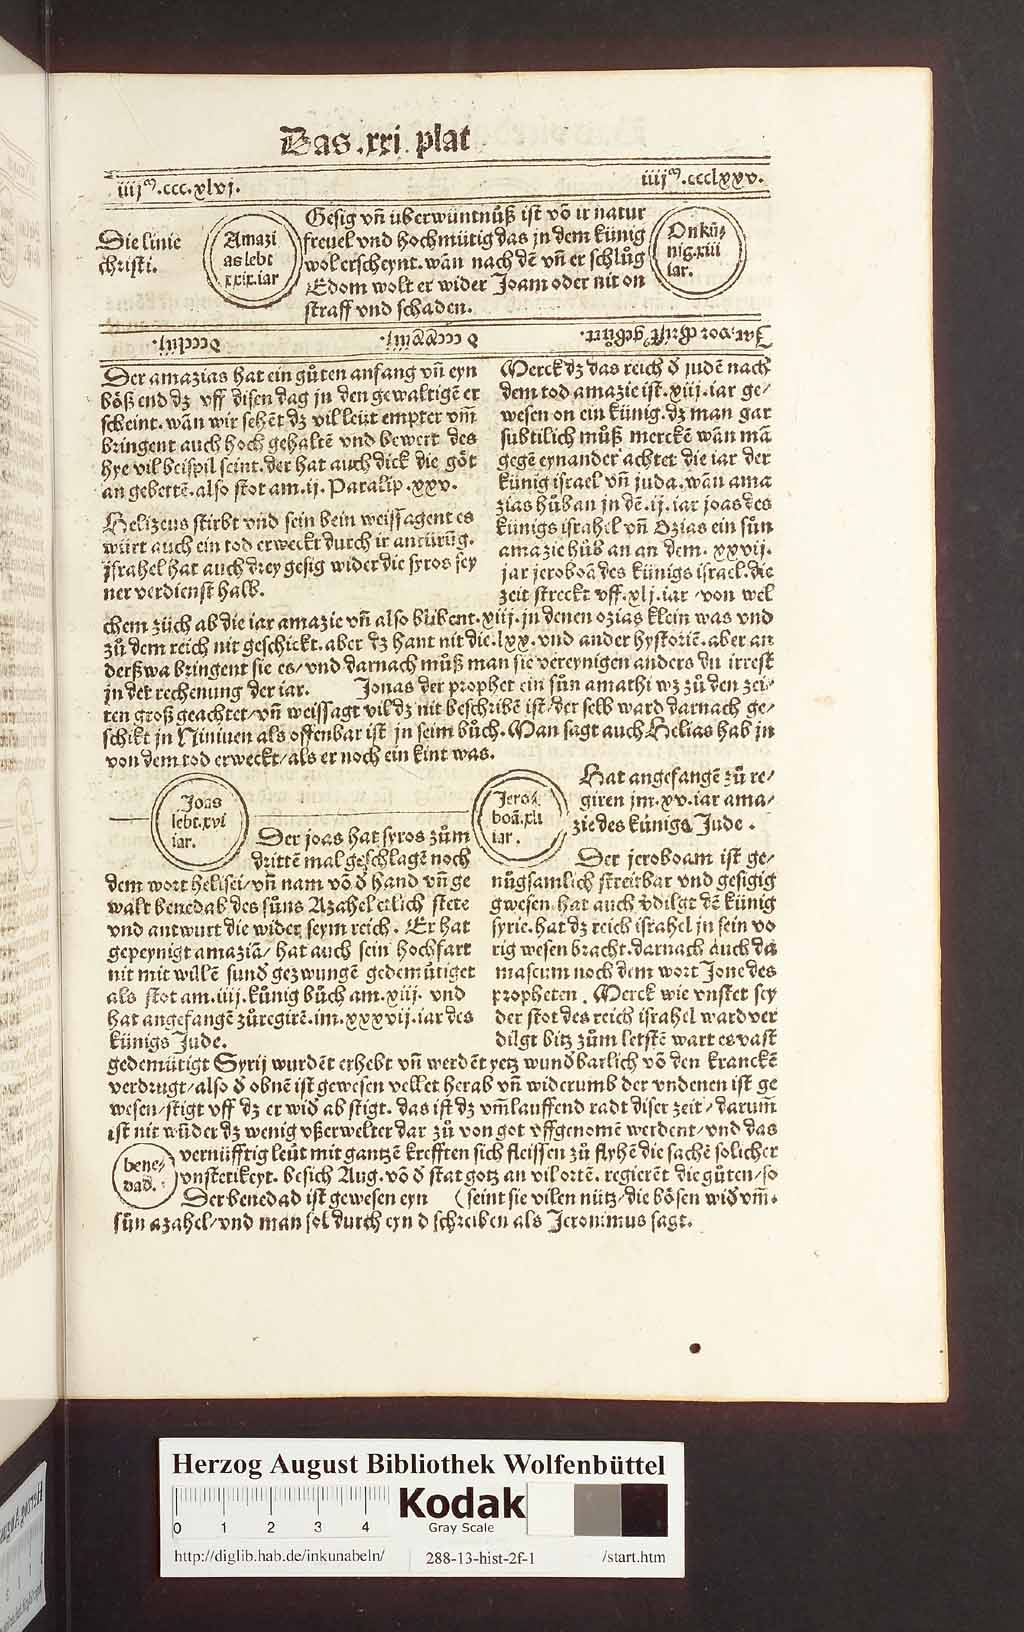 Das .xxi. plat
iiijᵐ.ccc.xlvj.
iiijᵐ.ccclxxv.
Die linie
christi.
Amazi
as lebt
xxix.iar
Gesig vñ überwüntnůß ist võ ir natur
freuel vnd hochmütig das jn dem künig
wol erscheynt. wañ nach dẽ vñ er schlůg
Edom wolt er wider Joam oder nit on
straff vnd schaden.
On kü⸗
nig.xiii
iar.
Iar vor christ' gebürt.
Der amazias hat ein gůten anfang vñ eyn
böß end dz vff disen dag jn den gewaltigẽ er
scheint. wãn wir sehẽt dz vil leüt empter vm̃
bringent auch hoch gehaltẽ vnd bewert des
hye vil beispil seint. der hat auch dick die göt
an gebettẽ. also stot am .ij. Paralip .xxv.
Helizeus stirbt vnd sein bein weissagent es
würt auch ein tod erweckt durch ir anrürũg.
jsrahel hat auch drey gesig wider die syros sey
ner verdienst halb.
Merck dz das reich d̕ judẽ nach
dem tod amazie ist .xiij. iar ge⸗
wesen on ein künig. dz man gar
subtilich můß merckẽ wañ mã
gegẽ eynander achtet die iar der
künig israel vñ juda. wañ ama
zias hůb an jn dẽ .ij. iar joas des
künigs israhel vñ Ozias ein sůn
amazie hůb an an dem. xxvij.
jar jeroboã des künigs israel. die
zeit streckt vff .xlj. iar / von wel
chem züch ab die iar amazie vñ also blibent .xiij. jn denen ozias klein was vnd
zů dem reich nit geschickt. aber dz hant nit die .lxx. vnd ander hystoriẽ. aber an
derßwa bringent sie es / vnd darnach můß man sie vereynigen anders du irrest
jn der rechenung der iar. Jonas der prophet ein sůn amathi wz zů den zei⸗
ten groß geachtet / vñ weissagt vil dz nit beschribẽ ist / der selb ward darnach ge⸗
schikt jn Niniuen als offenbar ist jn seim bůch. Man sagt auch Helias hab jn
von dem tod erweckt / als er noch ein kint was.
Joas
lebt.xvi
iar.
Jero⸗
boã.xli
iar.
Hat angefangẽ zů re⸗
giren jm .xv. iar ama⸗
zie des künigs Jude.
Der joas hat syros zům
drittẽ mal geschlagẽ noch
dem wort helisei / vñ nam võ d̕ hand vñ ge
walt benedab des sůns Azahel etlich stete
vnd antwurt die wider seym reich. Er hat
gepeynigt amaziã / hat auch sein hochfart
nit mit willẽ sund̕ gezwungẽ gedemůtiget
als stot am .iiij. kůnig bůch am .xiij. vnd
hat angefangẽ zů regirẽ. im .xxxvij. iar des
künigs Jude.
Der jeroboam ist ge⸗
nůgsamlich streitbar vnd gesigig
gwesen hat auch v̕dilgt dẽ künig
syrie. hat dz reich israhel jn sein vo
rig wesen bracht. darnach auch da
mascum noch dem wort Jone des
propheten. Merck wie vnstet sey
der stot des reich israhel ward ver
dilgt bitz zům letstẽ wart es vast
gedemütigt Syrij wurdẽt erhebt vñ werdẽt yetz wund̕barlich võ den kranckẽ
verdrugt / also d̕ obnẽ ist gewesen vellet herab vñ widerumb der vndenen ist ge
wesen / stigt vff dz er wid̕ ab stigt. das ist dz vm̃lauffend radt diser zeit / darum̃
ist nit wũder dz wenig vßerwelter dar zů von got vffgenomẽ werdent / vnd das
vernüfftig leüt mit gantzẽ krefften sich fleissen zů flyhẽ die sachẽ solicher
vnstetikeyt. besich Aug. võ d̕ stat gotz an vil ortẽ. regierẽt die gůten / so
bene⸗
dad.
Der benedad ist gewesen eyn (seint sie vilen nütz / die bösen wid̕ vm̃.
sůn azahel / vnd man sol durch eyn d schreiben als Jeronimus sagt.
Herzog August Bibliothek Wolfenbüttel
0 1 2 3 4
Kodak
Gray Scale
http://diglib.hab.de/inkunabeln/ 288-13-hist-2f-1 /start.htm